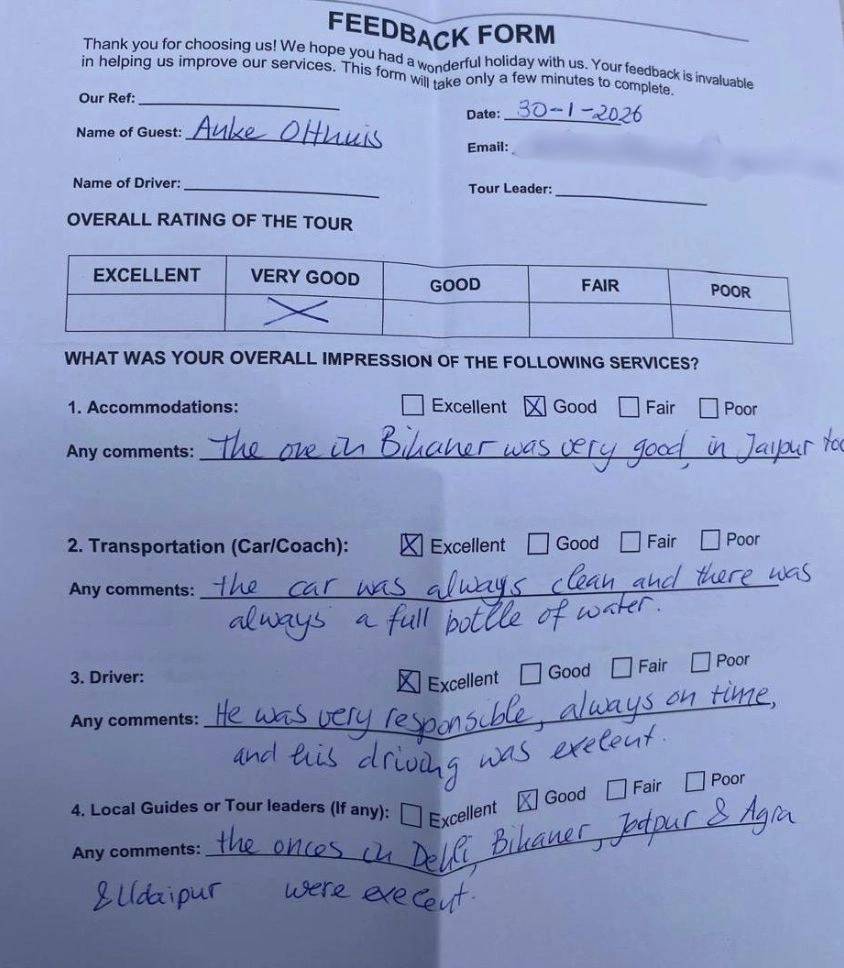 FEEDBACK FORM
Thank you for choosing us! We hope you had a wonderful holiday with us. Your feedback is invaluable
in helping us improve our services. This form will take only a few minutes to complete.
Our Ref:
Date: 30-1-2026
Name of Guest: Anke Olthuis
Email:
Name of Driver:
Tour Leader:
OVERALL RATING OF THE TOUR
EXCELLENT VERY GOOD GOOD FAIR POOR
WHAT WAS YOUR OVERALL IMPRESSION OF THE FOLLOWING SERVICES?
1. Accommodations: Excellent Good Fair Poor
Any comments: The one in Bikaner was very good, in Jaipur too
2. Transportation (Car/Coach): Excellent Good Fair Poor
Any comments: the car was always clean and there was
always a full bottle of water.
3. Driver: Excellent Good Fair Poor
Any comments: He was very responsible, always on time,
and his driving was exelent.
4. Local Guides or Tour leaders (If any): Excellent Good Fair Poor
Any comments: the onces in Dehli, Bikaner, Jodpur & Agra
& Udaipur were execent.